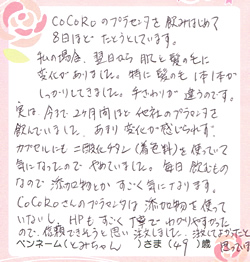 CoCoRoのプラセンタを飲みはじめて
8日ほどたとうとしています。
私の場合、翌日から肌と髪の毛に
変化がありました。特に髪の毛1本1本が
しっかりしてきました。手ざわりが違うのです。
実は、今まで2ヶ月間ほど他社のプラセンタを
飲んでいました。あまり変化が感じられず、
カプセルにも二酸化チタン(着色料)を使っていて
気になったのでやめていました。毎日飲むもの
なので添加物とかすごく気になります。
CoCoRoさんのプラセンタは添加物を使って
いないし、HPもすごく丁寧でわかりやすかった
ので、信頼できそうと思い注文しました。注文してよかったと
思っています
ペンネーム(とみちゃん)さま(49)歳